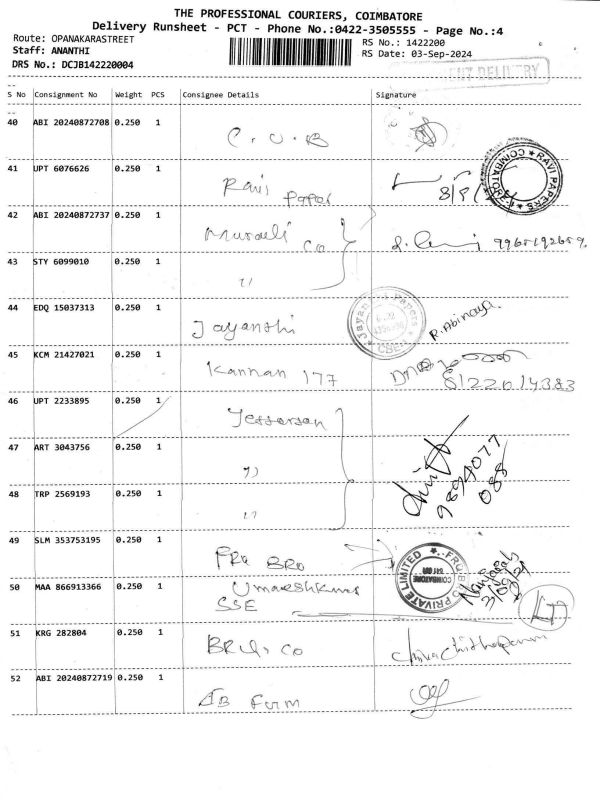 THE PROFESSIONAL COURIERS, COIMBATORE
Delivery Runsheet - PCT - Phone No.:0422-3505555 - Page No.:4
Route: OPANAKARASTREET
Staff: ANANTHI
DRS No.: DCJB142220004
RS No.: 1422200
RS Date: 03-Sep-2024
S No Consignment No Weight PCS Consignee Details Signature
40 ABI 20240872708 0.250 1 C.U.B
41 UPT 6076626 0.250 1 Ravi Paper
COIMBATORE RAVI PAPERS
42 ABI 20240872737 0.250 1 Co 9965192659
43 STY 6099010 0.250 1 "
44 EDQ 15037313 0.250 1 Jayanthi R. Abinaya
Jayanthi Papers
45 KCM 21427021 0.250 1 Kannan 177
8122014383
46 UPT 2233895 0.250 1 Jefferson
47 ART 3043756 0.250 1 "
9894077
088
48 TRP 2569193 0.250 1 "
49 SLM 353753195 0.250 1 FRU BRO
FRU BRO PRIVATE LIMITED
COIMBATORE
50 MAA 866913366 0.250 1 Umareshkumar
SSE
51 KRG 282804 0.250 1 Co
52 ABI 20240872719 0.250 1